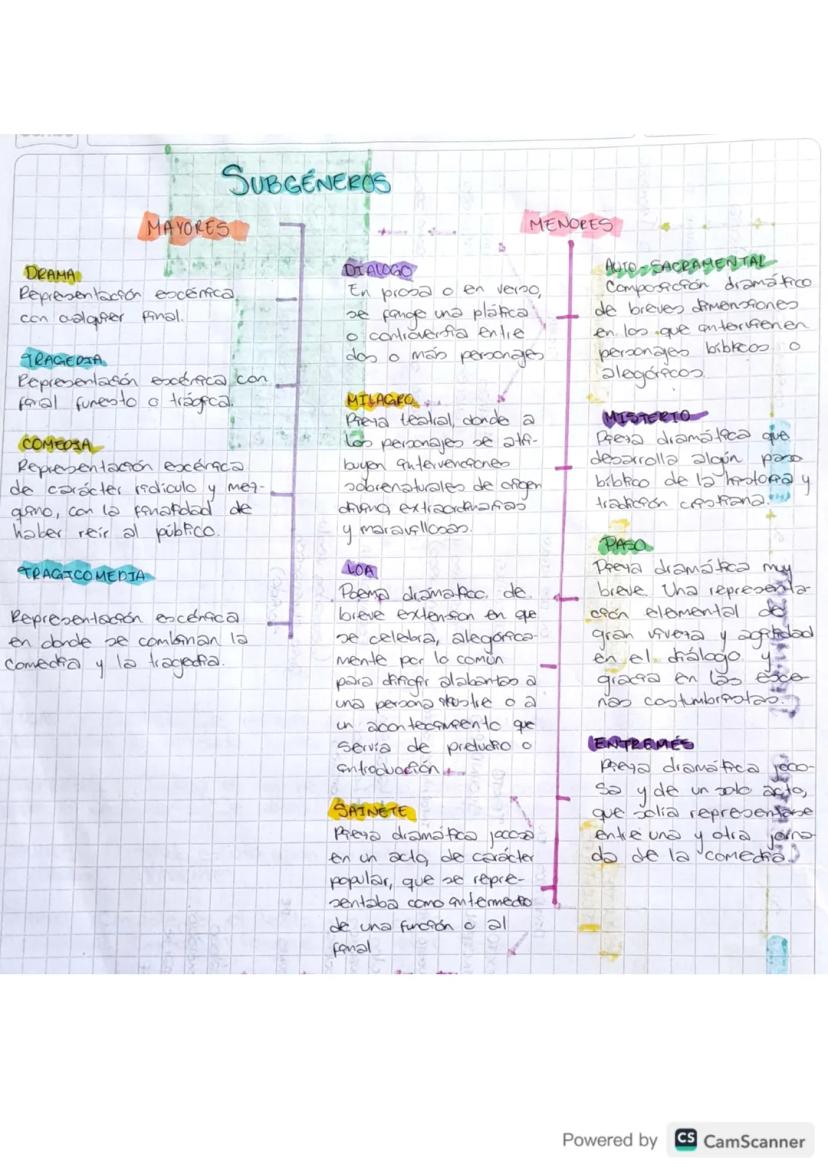 SUBGÉNEROS
MAYORES
DRAMA
Representación escénica
con cualquier final.
TRAGEDIA
Representación escénica con
final funesto o trágica.
COMEDIA
Representación escénica
de carácter ridículo y mez-
quino, con la finalidad de
haber reír al público.
TRAGICOMEDIA
Representación escénica
en donde se combinan la
comedia y la tragedia.
MENORES
DIALOGO
En prosa o en verso,
se finge una plática
o controversia entre
dos o más personajes
MILAGRO
Pieza teatral, donde a
los personajes se atri-
buyen intervenciones
sobrenaturales de origen
divino, extraordinarias
y maravillosas.
LOA
Poema dramatico, de
breve extension en que
se celebra, alegórica-
mente por lo común
para dirigir alabantos a
una persona ilustre o a
un acontecimiento que
servia de preludio o
introducción.
SAINETE
Pieza dramática jocosa
en un acto, de carácter
popular, que se repre-
sentaba como intermedio
de una función o al
final
AUTO-SACRAMENTAL
Composición dramático
de breves dimensiones
en los que intervienen
personajes bíblicos o
alegóricos.
MISTERIO
Pieza dramática que
desarrolla algún paso
bíblico de la historia y
tradición cristiana.
PASO
Pieza dramática muy
breve. Una representa-
ción elemental de
gran viveza y agilidad
en el diálogo y
gracia en las esce-
nas costumbristas.
ENTREMÉS
Pieza dramática joco-
sa y de un solo acto,
que solía representarse
entre una y otra jorna-
da de la comedia.
Powered by CS CamScanner